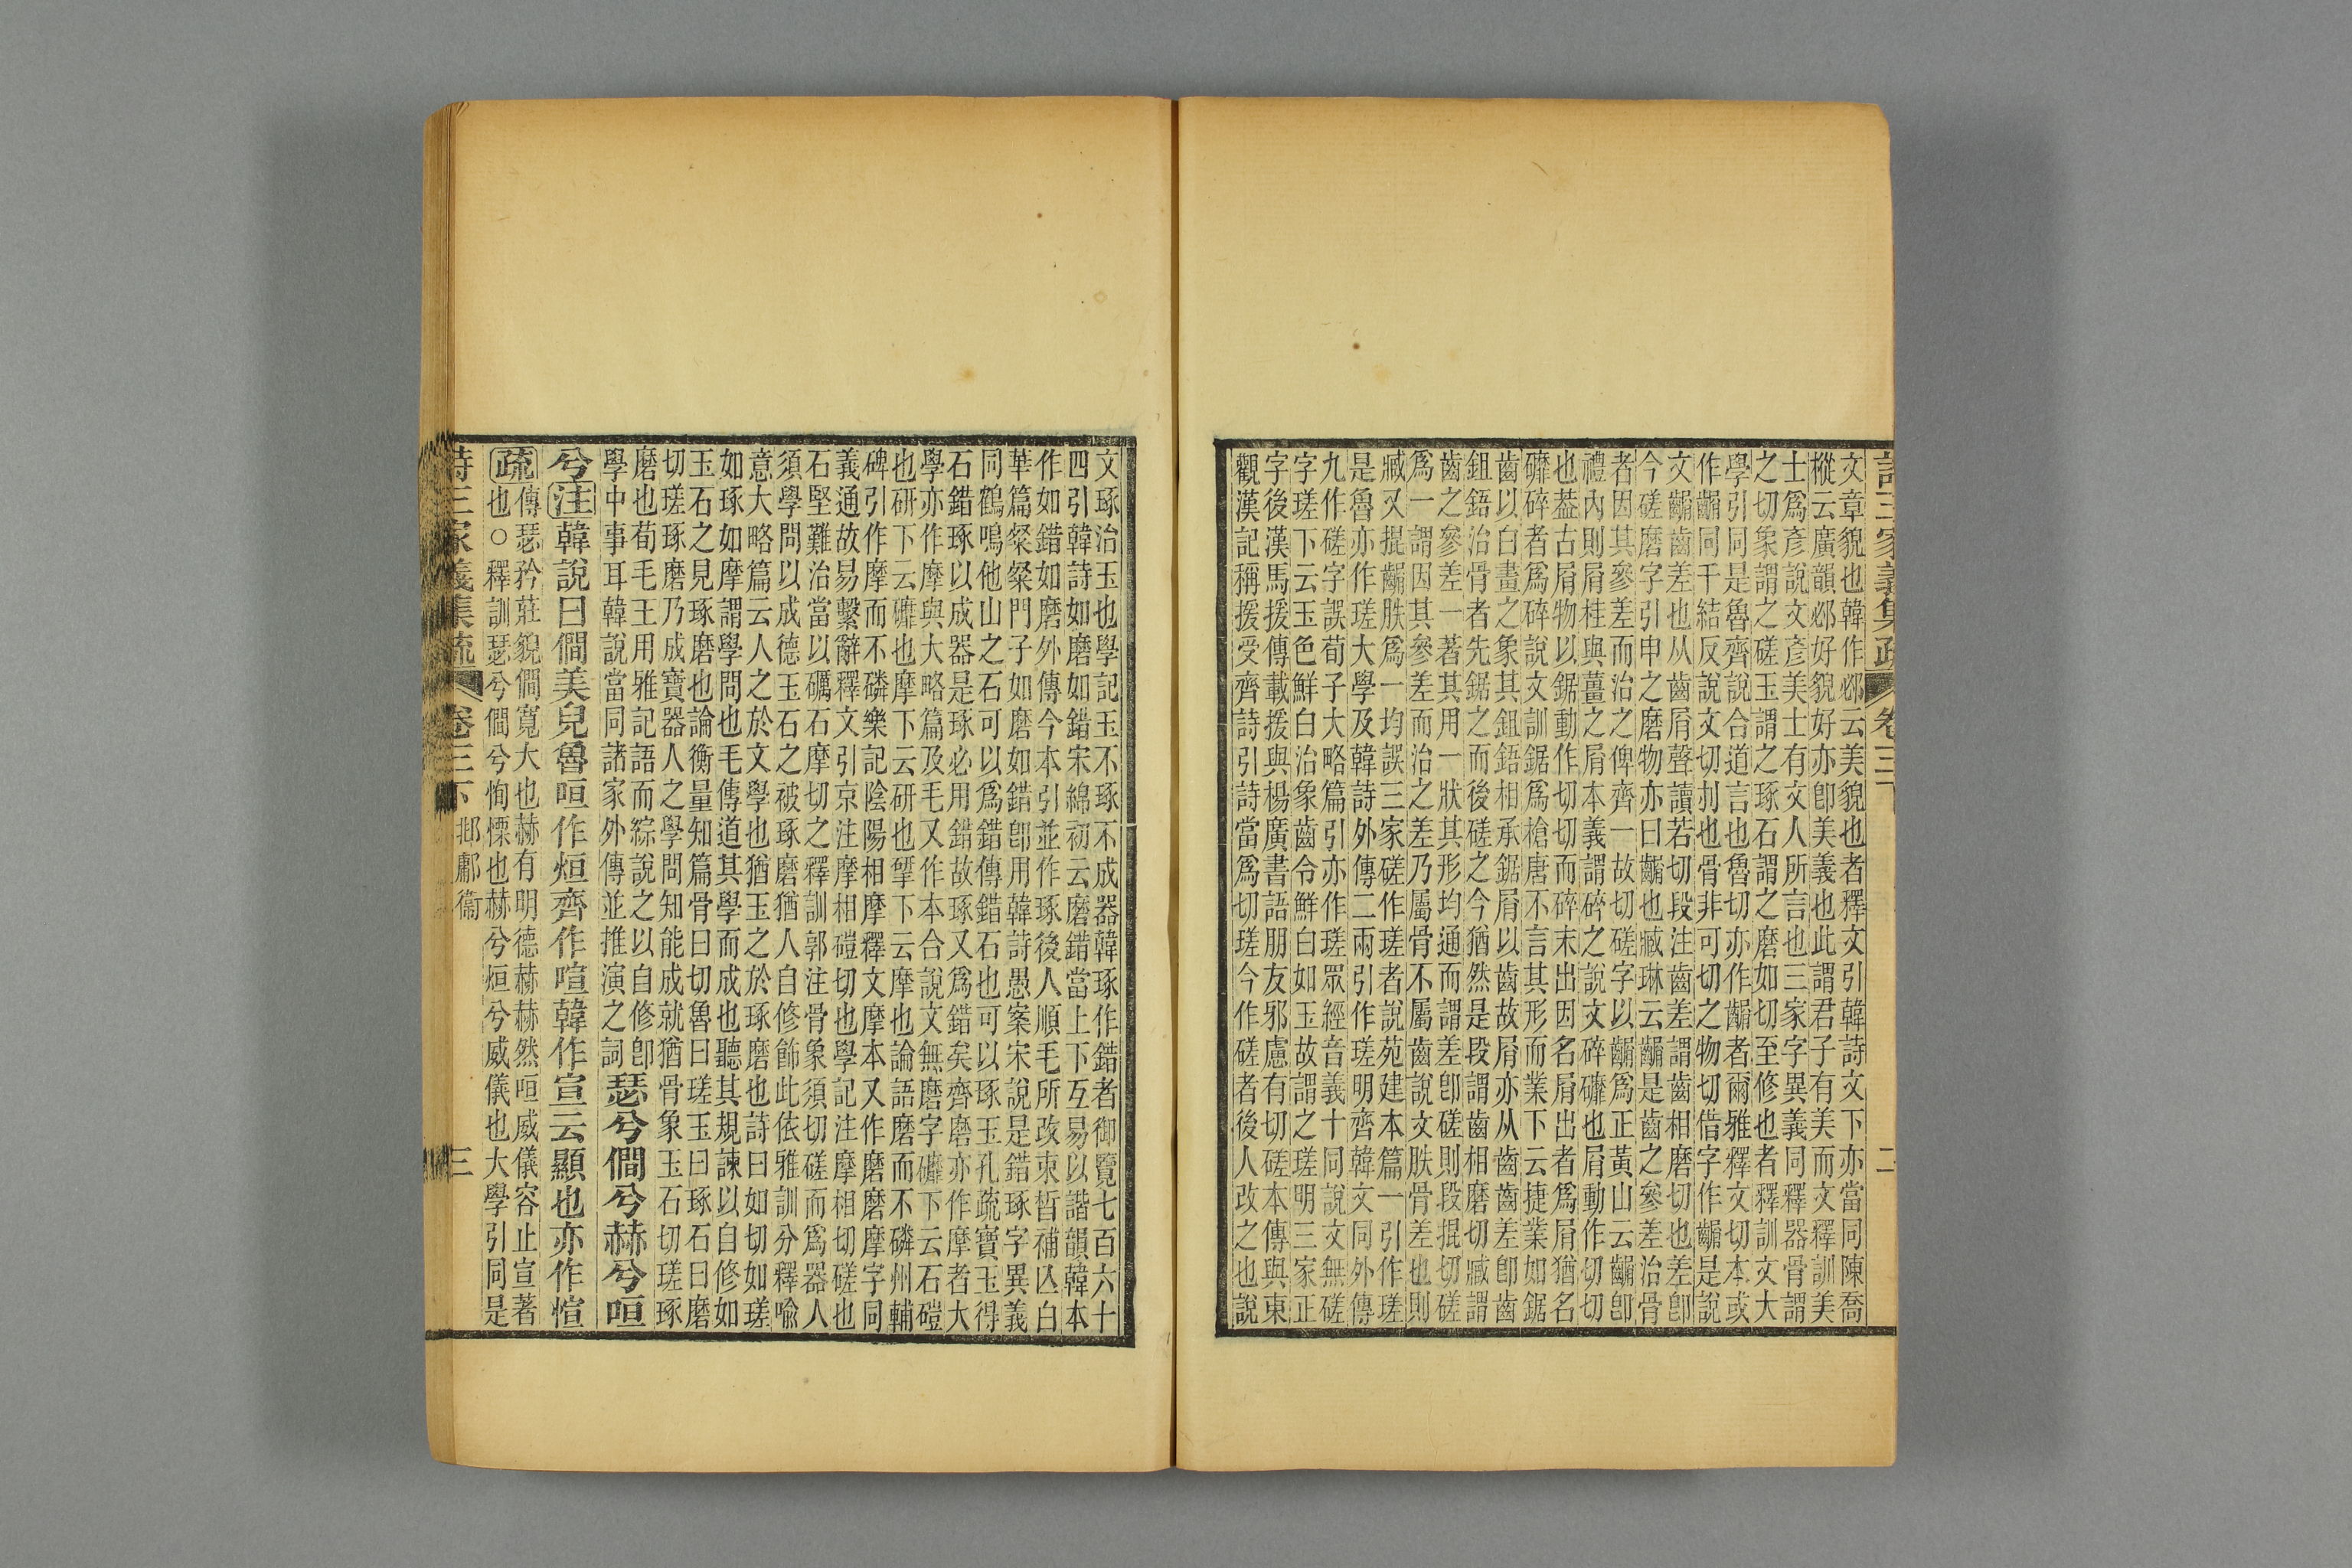 詩三家義集疏 卷三下 二
文章貌也韓作邲云美貌也者釋文引韓詩文下亦當同陳喬
樅云廣韻邲好貌好亦卽美義也此謂君子有美而文釋訓美
士爲彥說文彥美士有文人所言也三家字異義同釋器骨謂
之切象謂之磋玉謂之琢石謂之磨如切至修也者釋訓文大
學引同是魯齊說合道言也魯切亦作齵者爾雅釋文切本或
作齵同干結反說文切刌也骨非可切之物切借字作齵是說
文齵齒差也从齒屑聲讀若切段注齒差謂齒相磨切也差卽
今磋磨字引申之磨物亦曰齵也臧琳云齵是齒之參差治骨
者因其參差而治之俾齊一故切磋字以齵爲正黃山云齵卽
禮內則屑桂與薑之屑本義謂碎之說文碎䃺也屑動作切切
也蓋古屑物以鋸動作切切而碎末出因名屑出者爲屑猶名
䃺碎者爲碎說文訓鋸爲槍唐不言其形而業下云捷業如鋸
齒以白畫之象其鉏鋙相承鋸屑以齒故屑亦从齒齒差卽齒
鉏鋙治骨者先鋸之而後磋之今猶然是段謂齒相磨切臧謂
齒之參差一著其用一狀其形均通而謂差卽磋則段掍切磋
爲一謂因其參差而治之差乃屬骨不屬齒說文胅骨差也則
臧又掍齵胅爲一均誤三家磋作瑳者說苑建本篇一引作瑳
是魯亦作瑳大學及韓詩外傳二兩引作瑳明齊韓文同外傳
九作磋字誤荀子大略篇引亦作瑳眾經音義十同說文無磋
字瑳下云玉色鮮白治象齒令鮮白如玉故謂之瑳明三家正
字後漢馬援傳載援與楊廣書語朋友邪慮有切磋本傳與東
觀漢記稱援受齊詩引詩當爲切瑳今作磋者後人改之也說
文琢治玉也學記玉不琢不成器韓琢作錯者御覽七百六十
四引韓詩如磨如錯宋綿初云磨錯當上下互易以諧韻韓本
作如錯如磨外傳今本引並作琢後人順毛所改束皙補亾白
華篇粲粲門子如磨如錯卽用韓詩愚案宋說是錯琢字異義
同鶴鳴他山之石可以爲錯傳錯石也可以琢玉孔疏寶玉得
石錯琢以成器是琢必用錯故琢又爲錯矣齊磨亦作摩者大
學亦作摩與大略篇及毛又作本合說文無磨字䃺下云石磑
也研下云䃺也摩下云研也揅下云摩也論語磨而不磷州輔
碑引作摩而不磷樂記陰陽相摩釋文摩本又作磨磨摩字同
義通故易繫辭釋文引京注摩相磑切也學記注摩相切磋也
石堅難治當以礪石摩切之釋訓郭注骨象須切磋而爲器人
須學問以成德玉石之被琢磨猶人自修飾此依雅訓分釋喩
意大略篇云人之於文學也猶玉之於琢磨也詩曰如切如瑳
如琢如摩謂學問也毛傳道其學而成也聽其規諫以自修如
玉石之見琢磨也論衡量知篇骨曰切魯曰瑳玉曰琢石曰磨
切瑳琢磨乃成寶器人之學問知能成就猶骨象玉石切瑳琢
磨也荀毛王用雅記語而綜說之以自修卽
學中事耳韓說當同諸家外傳並推演之詞瑟兮僩兮赫兮咺
兮注韓說曰僩美皃魯咺作烜齊作喧韓作宣云顯也亦作愃
疏傳瑟矜莊貌僩寬大也赫有明德赫赫然咺威儀容止宣著
也○釋訓瑟兮僩兮恂慄也赫兮烜兮威儀也大學引同是
詩三家義集疏 卷三下 邶鄘衞 三